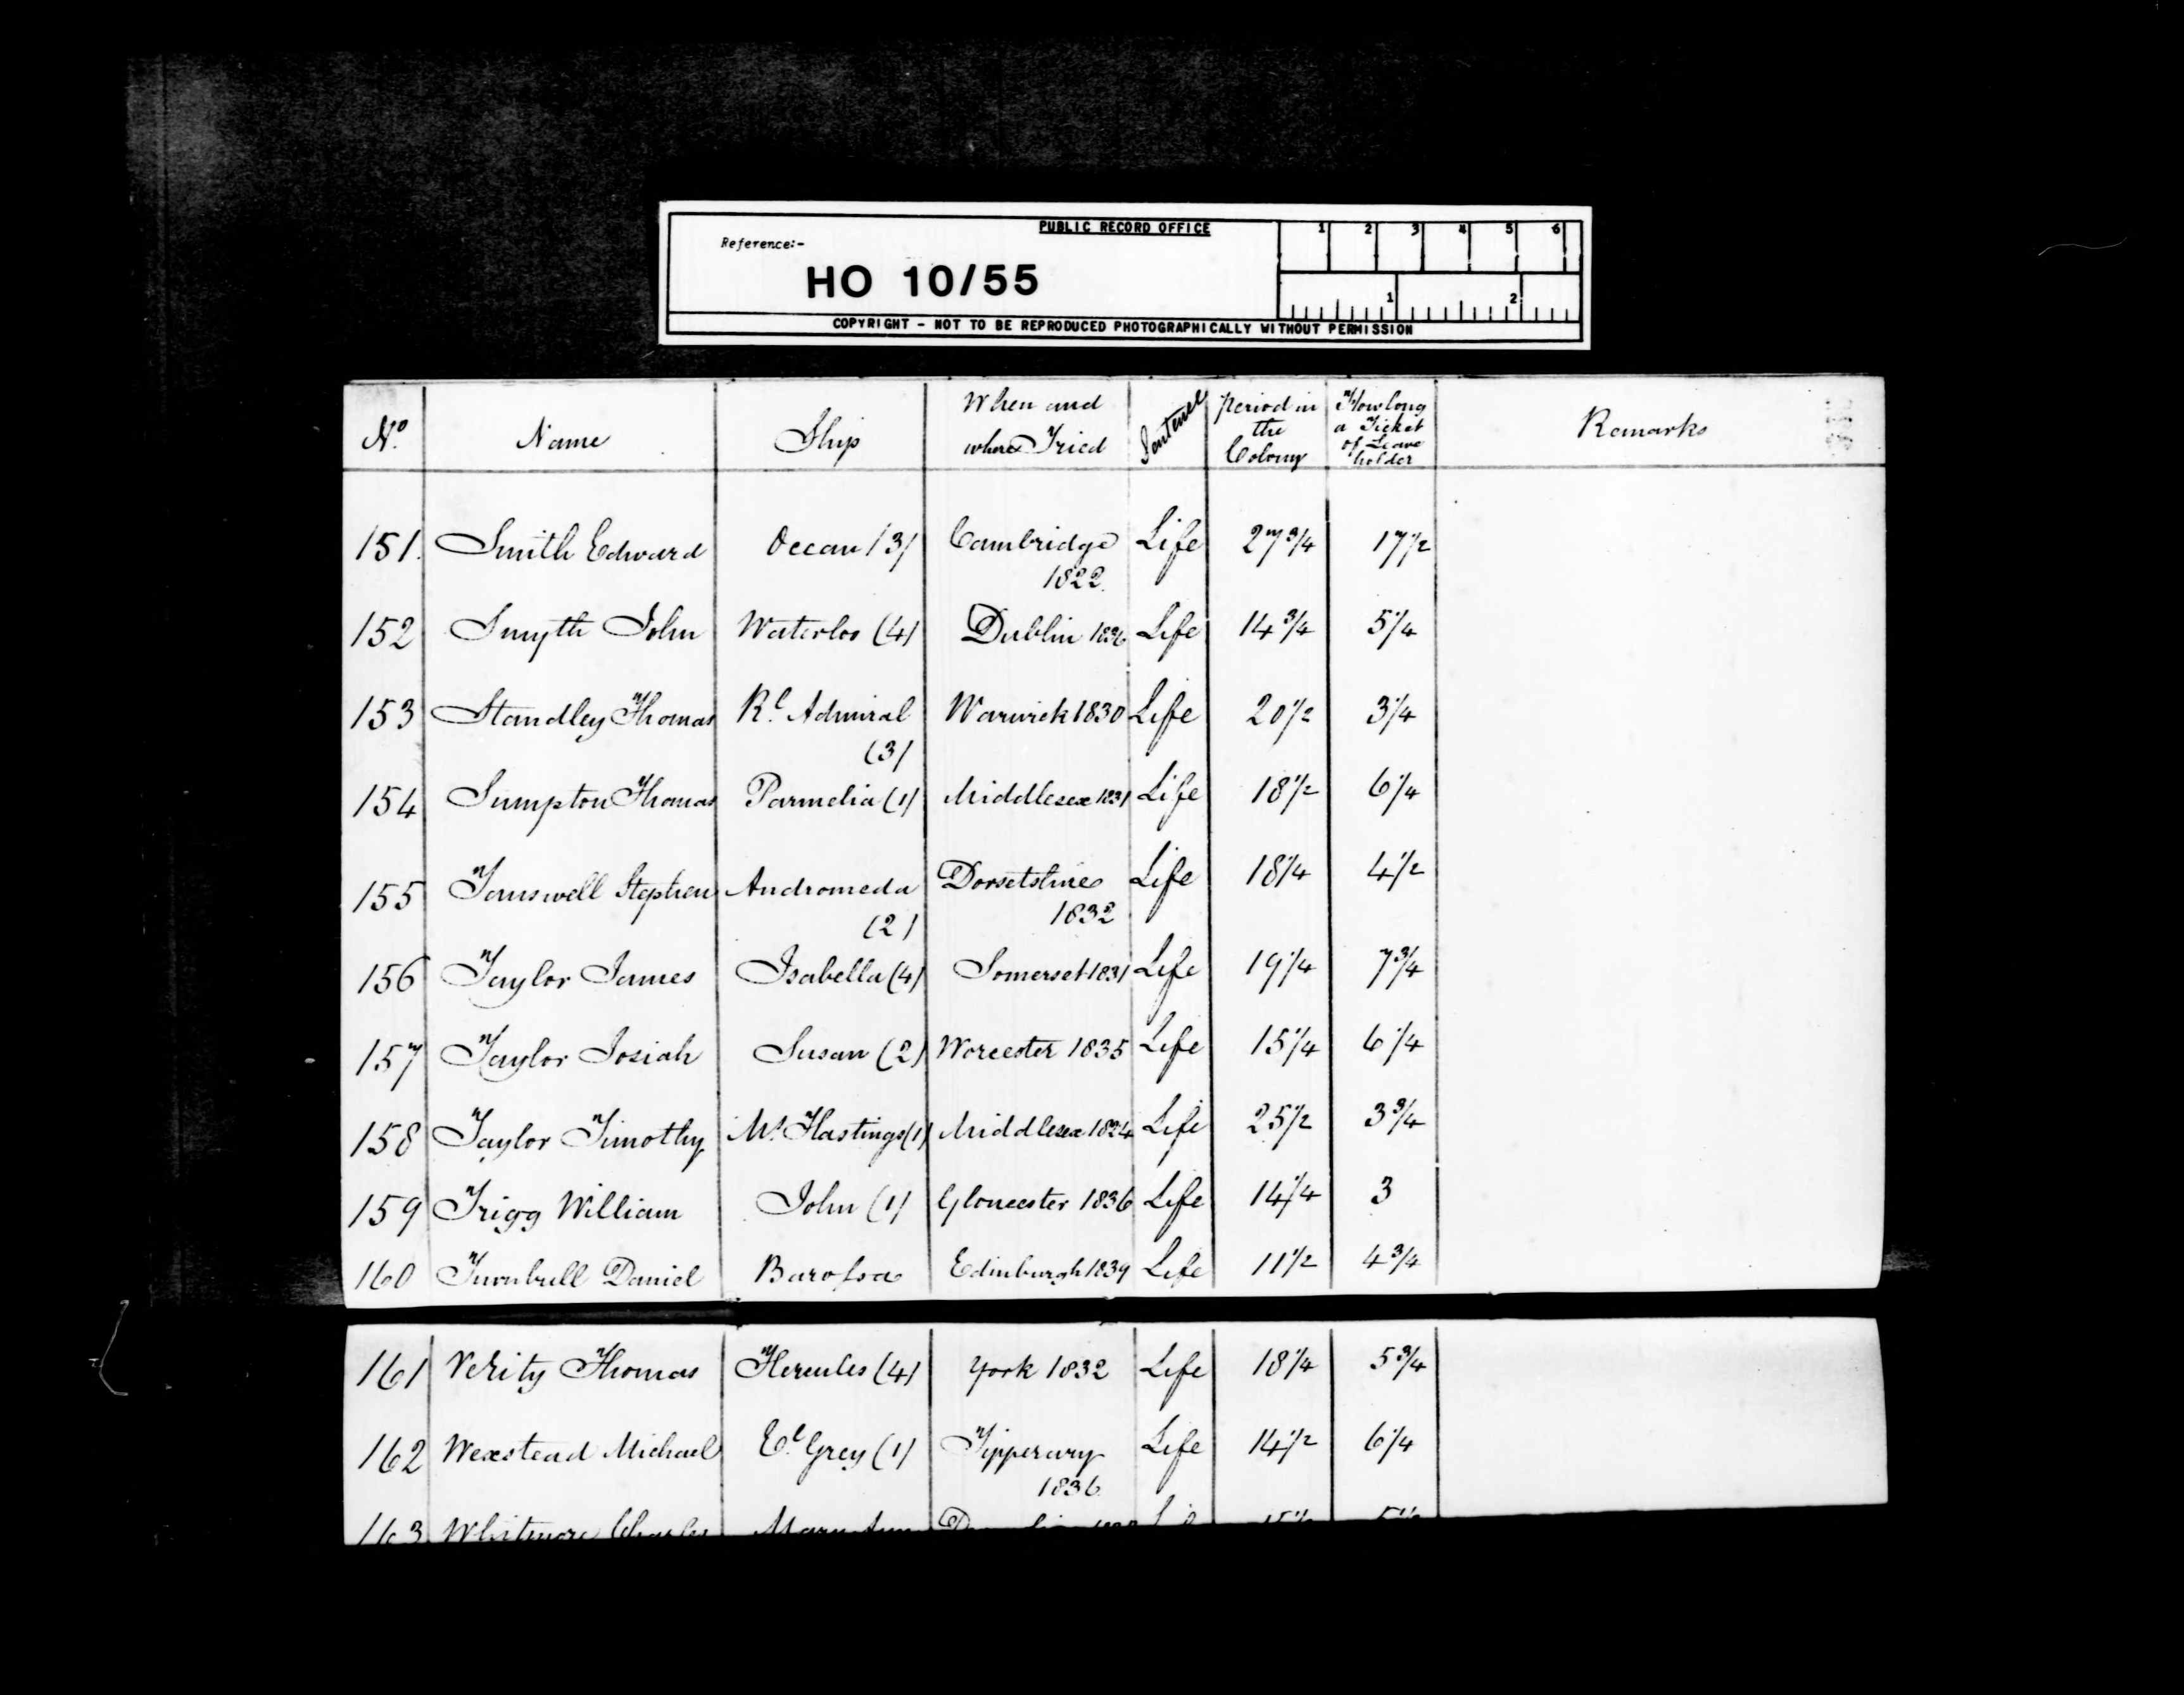 PUBLIC RECORD OFFICE
Reference:-
HO 10/55
1 2 3 4 5 6
1 2
COPYRIGHT - NOT TO BE REPRODUCED PHOTOGRAPHICALLY WITHOUT PERMISSION
No. Name Ship When and where Tried Sentence Period in the Colony How long a Ticket of Leave holder Remarks
151. Smith Edward Ocean (3) Cambridge Life 27 3/4 17 1/2
1822.
152 Smyth John Waterloo (4) Dublin 1836 Life 14 3/4 5 1/4
153 Standley Thomas Rl. Admiral Warwick 1830 Life 20 1/2 3 1/4
(3)
154 Sumpton Thomas Parmelia (1) Middlesex 1831 Life 18 1/2 6 1/4
155 Tamswell Stephen Andromeda Dorsetshire Life 18 1/4 4 1/2
(2) 1832
156 Taylor James Isabella (4) Somerset 1831 Life 19 1/4 7 3/4
157 Taylor Josiah Susan (2) Worcester 1835 Life 15 1/4 6 1/4
158 Taylor Timothy Ms. Hastings (1) Middlesex 1824 Life 25 1/2 3 3/4
159 Trigg William John (1) Gloucester 1836 Life 14 1/4 3
160 Turnbull Daniel Barossa Edinburgh 1839 Life 11 1/2 4 3/4
161 Verity Thomas Hercules (4) York 1832 Life 18 1/4 5 3/4
162 Wexstead Michael El. Grey (1) Tipperary Life 14 1/2 6 1/4
1836.
163 Whitmore Charles Mary Ann